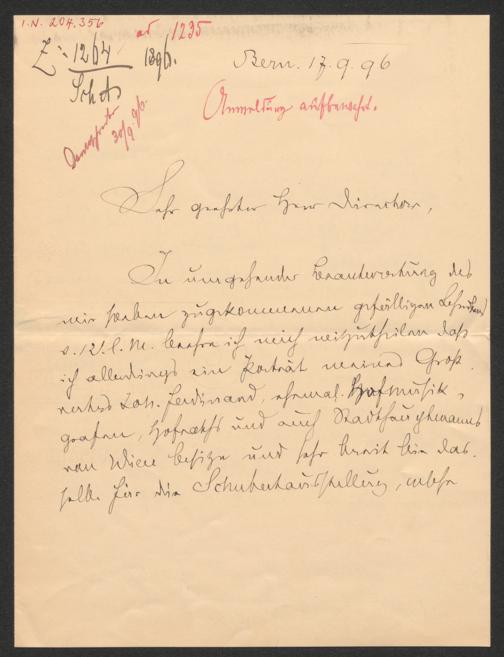 I.N. 204.356
ad 1235
Z: 1264 / 1896.
Sch
30/9 96.
Bern. 17.9.96
Anmeldung aufbewahrt.
Sehr geehrter Herr Director,
In umgehender Beantwortung des
mir soeben zugekommenen gefälligen
v. 12 l. M. beehre ich mich mitzutheilen daß
ich allerdings ein Porträt meines Groß-
vaters Joh. Ferdinand, ehemal. Hofmusik-
grafen, Hofraths und auch Stadthauptmanns
von Wien besitze und sehr bereit bin das-
selbe für die Schubertausstellung, welche